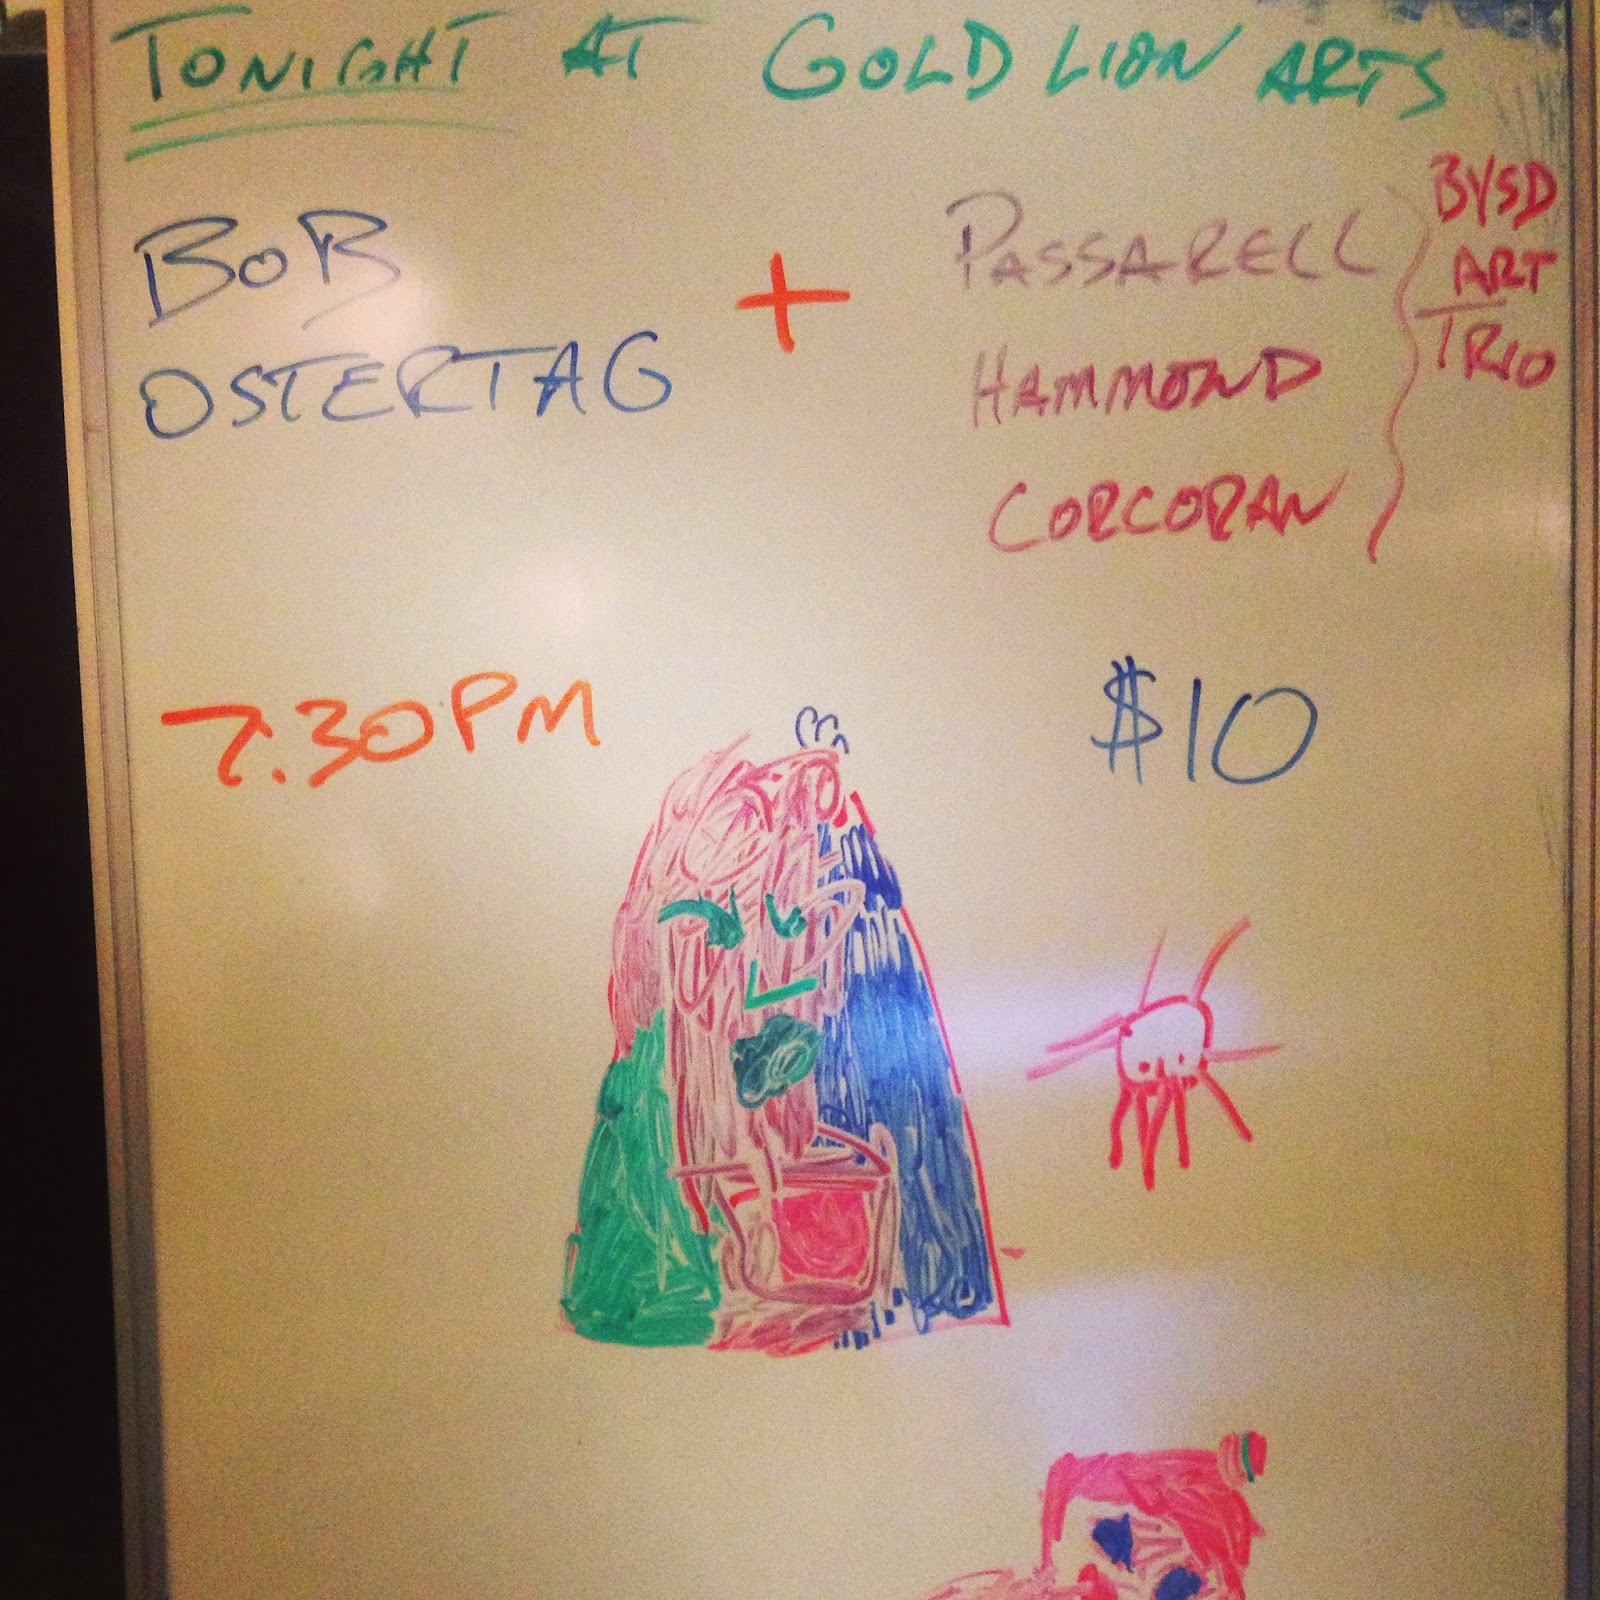 TONIGHT AT GOLD LION ARTS
BOB
OSTERTAG
+
PASSARELL
HAMMOND
CORCORAN
BYSD
ART
TRIO
7.30PM
$10